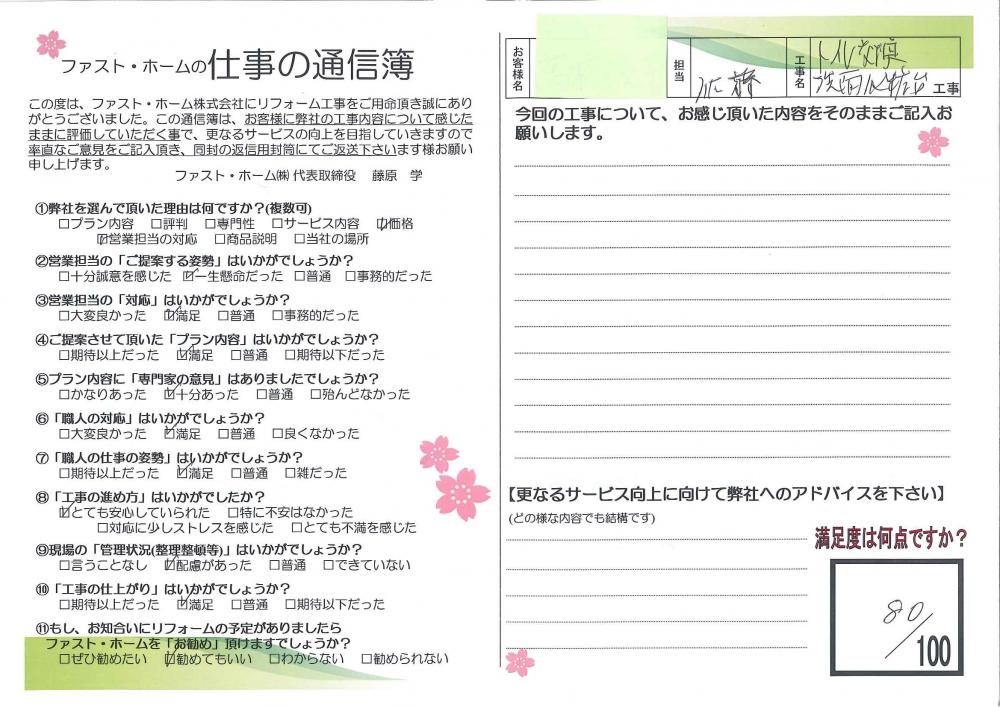 ファスト・ホームの仕事の通信簿
この度は、ファスト・ホーム株式会社にリフォーム工事をご用命頂き誠にあり
がとうございました。この通信簿は、お客様に弊社の工事内容について感じた
ままに評価していただく事で、更なるサービスの向上を目指していきますので
率直なご意見をご記入頂き、同封の返信用封筒にてご返送下さいます様お願い
申し上げます。
ファスト・ホーム㈱ 代表取締役 藤原 学
①弊社を選んで頂いた理由は何ですか？(複数可)
□プラン内容 □評判 □専門性 □サービス内容 ☑価格
☑営業担当の対応 □商品説明 □当社の場所
②営業担当の「ご提案する姿勢」はいかがでしょうか？
□十分誠意を感じた ☑一生懸命だった □普通 □事務的だった
③営業担当の「対応」はいかがでしょうか？
□大変良かった ☑満足 □普通 □事務的だった
④ご提案させて頂いた「プラン内容」はいかがでしょうか？
□期待以上だった ☑満足 □普通 □期待以下だった
⑤プラン内容に「専門家の意見」はありましたでしょうか？
□かなりあった ☑十分あった □普通 □殆んどなかった
⑥「職人の対応」はいかがでしょうか？
□大変良かった ☑満足 □普通 □良くなかった
⑦「職人の仕事の姿勢」はいかがでしょうか？
□期待以上だった ☑満足 □普通 □雑だった
⑧「工事の進め方」はいかがでしたか？
☑とても安心していられた □特に不安はなかった
□対応に少しストレスを感じた □とても不満を感じた
⑨現場の「管理状況(整理整頓等)」はいかがでしょうか？
□言うことなし ☑配慮があった □普通 □できていない
⑩「工事の仕上がり」はいかがでしょうか？
□期待以上だった ☑満足 □普通 □期待以下だった
⑪もし、お知合いにリフォームの予定がありましたら
ファスト・ホームを「お勧め」頂けますでしょうか？
□ぜひ勧めたい ☑勧めてもいい □わからない □勧められない
お客様名
担当 佐藤
工事名 工事
今回の工事について、お感じ頂いた内容をそのままご記入お
願いします。
【更なるサービス向上に向けて弊社へのアドバイスを下さい】
(どの様な内容でも結構です)
満足度は何点ですか？
80/100